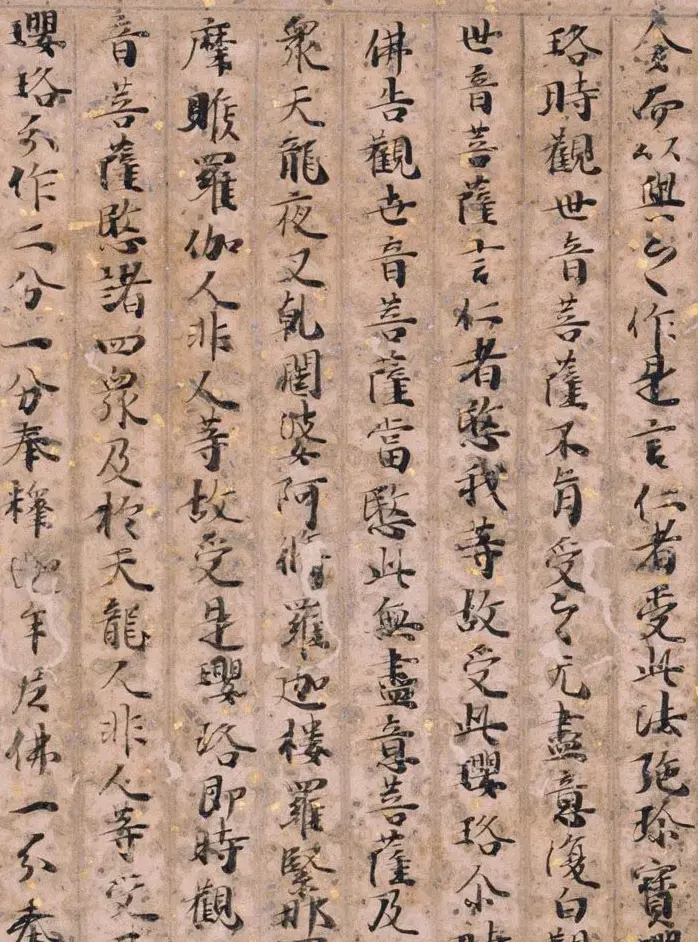 金而以與之作是言仁者受此法施珎寶
珞時觀世音菩薩不肯受之无盡意復白觀
世音菩薩言仁者愍我等故受此瓔珞尒時
佛告觀世音菩薩當愍此無盡意菩薩及
衆天龍夜叉乹闥婆阿脩羅迦樓羅緊那
摩睺羅伽人非人等故受是瓔珞即時觀
音菩薩愍諸四衆及於天龍人非人等受
瓔珞分作二分一分奉釋迦牟尼佛一分奉